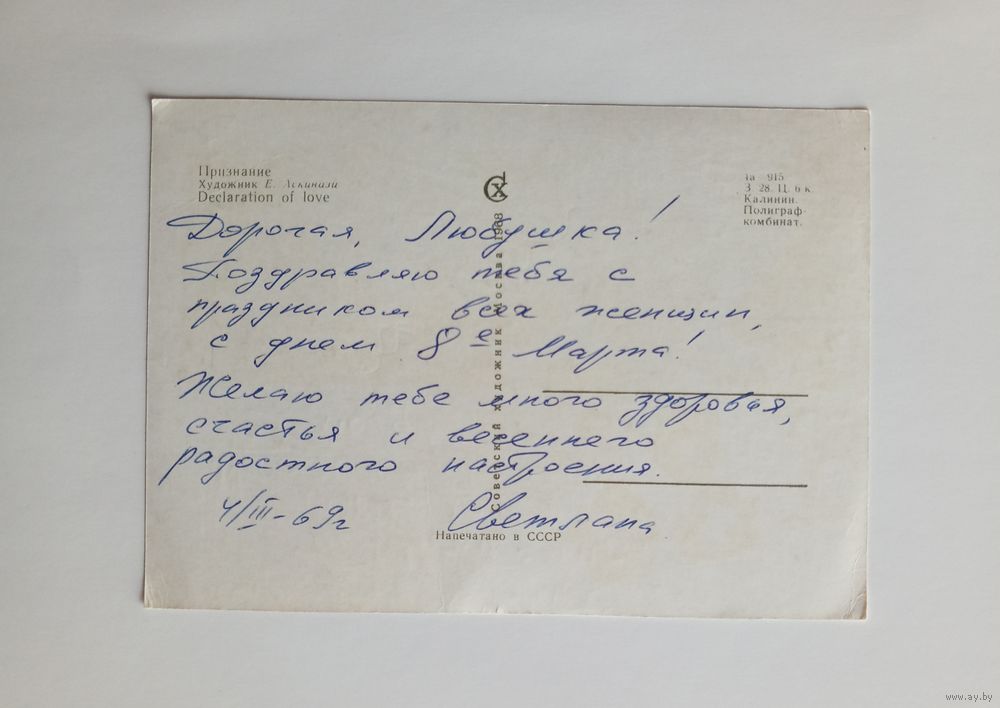 Признание
Художник Е. Аскинази
Declaration of love
СХ
1а—915.
З. 28. Ц. 6 к.
Калинин.
Полиграф-
комбинат.
Советский художник Москва 1968
Дорогая, Любушка!
Поздравляю тебя с
праздником всех женщин,
с днем 8е Марта!
Желаю тебе много здоровья,
счастья и весеннего
радостного настроения.
4/III-69г Светлана
Напечатано в СССР
www.ay.by